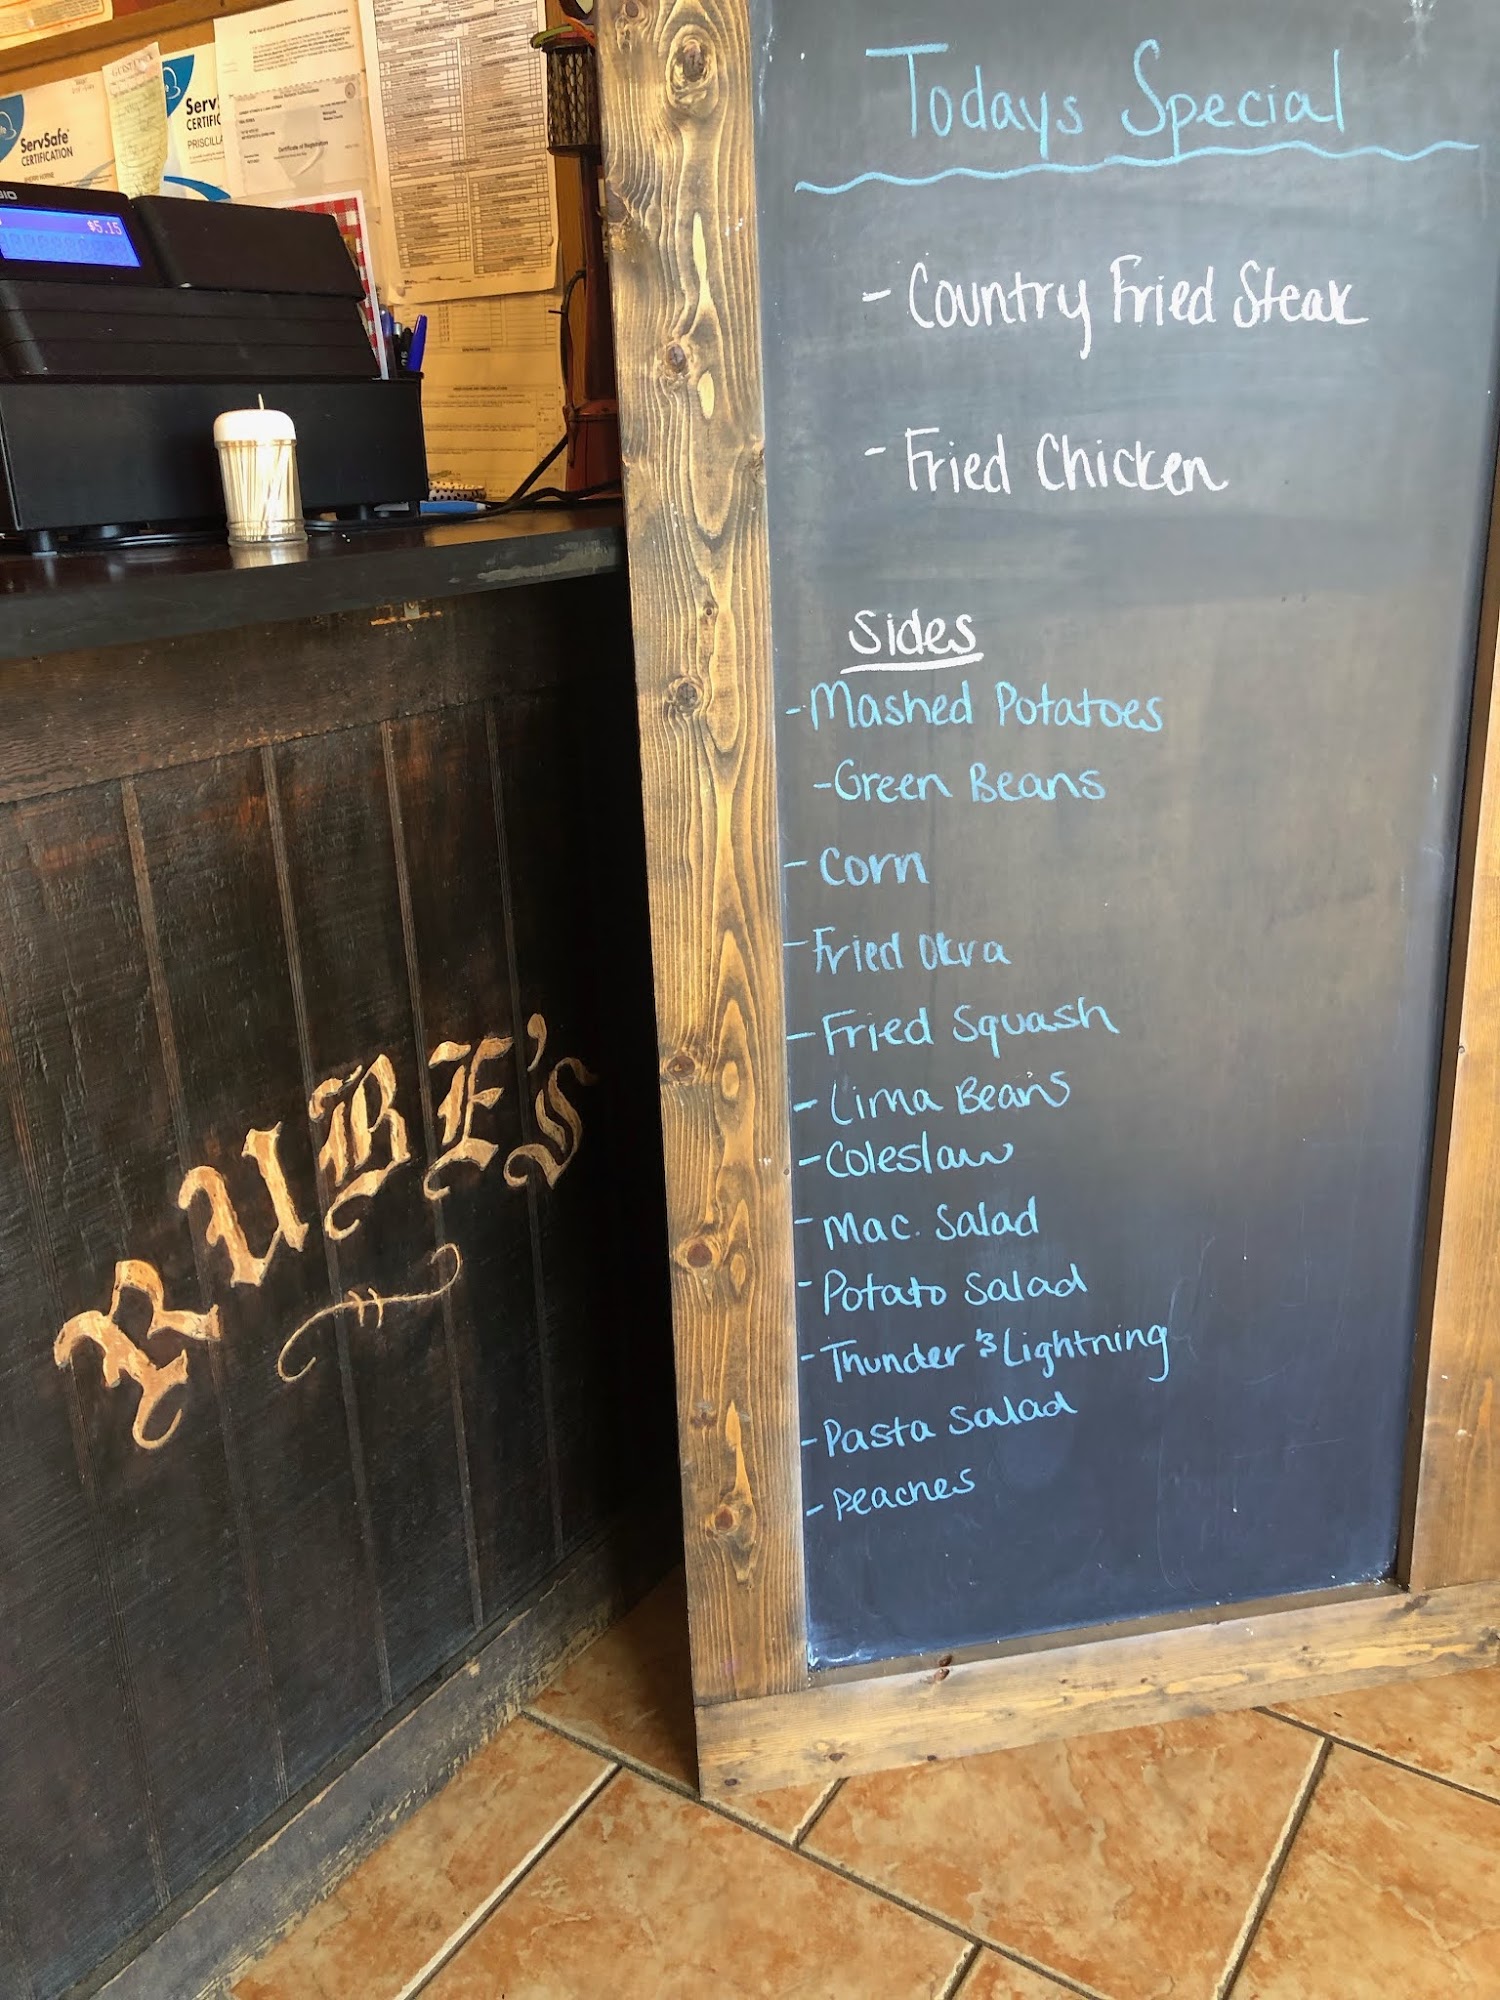 Todays Special
- Country Fried Steak
- Fried Chicken
Sides
- Mashed Potatoes
- Green Beans
- Corn
- Fried Okra
- Fried Squash
- Lima Beans
- Coleslaw
- Mac. Salad
- Potato Salad
- Thunder & Lightning
- Pasta Salad
- Peaches
RUBE'S
$5.15
ServSafe
CERTIFICATION
SHERRI HORNE
Serv
CERTIFIC
PRISCILLA
Certificate of Registration